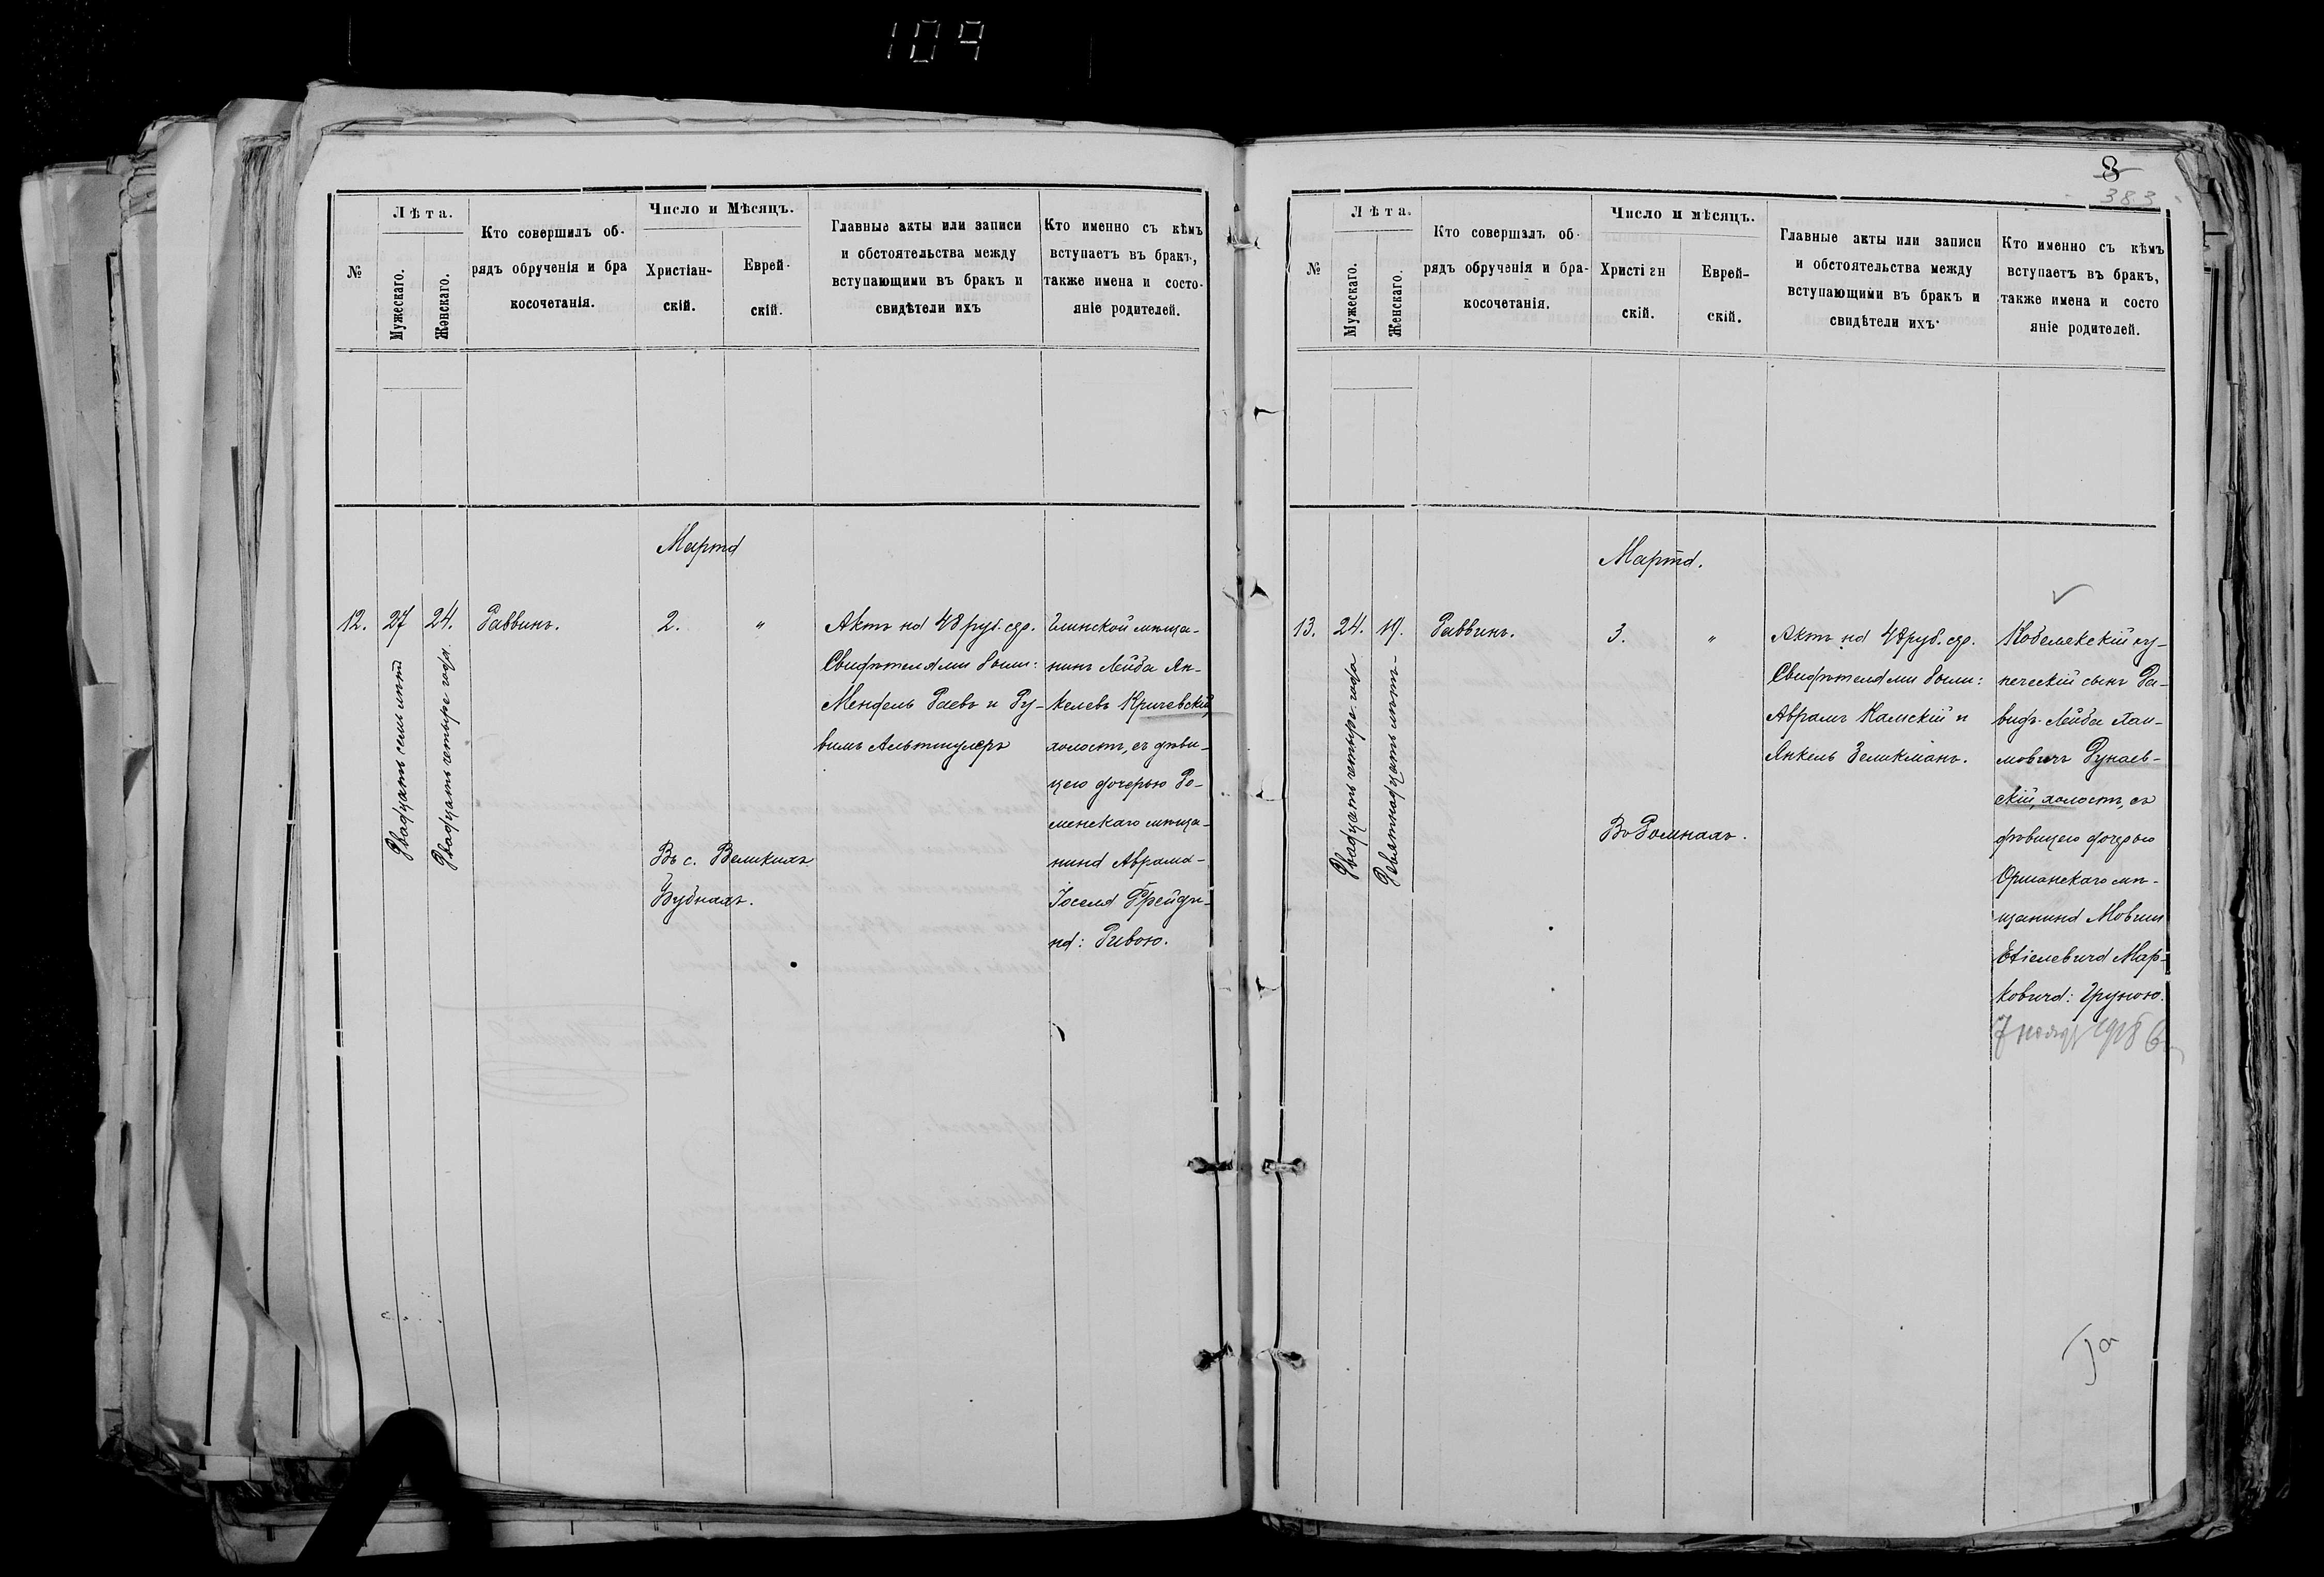 109
№
Лѣта.
Мужескаго.
Женскаго.
Кто совершилъ об-
рядъ обрученія и бра
косочетанія.
Число и Мѣсяцъ.
Христіан-
скій.
Еврей-
скій.
Главные акты или записи
и обстоятельства между
вступающими въ бракъ и
свидѣтели ихъ
Кто именно съ кѣмъ
вступаетъ въ бракъ,
также имена и состо-
яніе родителей.
Марта
12.
27
Двадцать семь лѣтъ
24.
Двадцать четыре года.
Раввинъ.
2.
"
Въ с. Великихъ
Бубнахъ.
Актъ на 48 руб. сер.
Свидѣтелями были:
Мендель Раевъ и Ру-
вимъ Альтшулеръ
Глинской мѣща-
нинъ Лейба Ян-
келевъ Кричевскій,
холостъ, съ дѣви-
цею дочерью Ро-
менскаго мѣща-
нина Абрама-
Іоселя Фрейди-
на: Ривою.
8
383
№
Лѣта.
Мужескаго.
Женскаго.
Кто совершалъ об-
рядъ обрученія и бра-
косочетанія.
Число и мѣсяцъ.
Христіан
скій.
Еврей-
скій.
Главные акты или записи
и обстоятельства между
вступающими въ бракъ и
свидѣтели ихъ
Кто именно съ кѣмъ
вступаетъ въ бракъ,
также имена и состо
яніе родителей.
Марта.
13.
24.
Двадцать четыре года
19.
Девятнадцать лѣтъ
Раввинъ.
3.
"
Въ Ромнахъ.
Актъ на 48 руб. сер.
Свидѣтелями были:
Абрамъ Камскій и
Янкель Зеликманъ.
Кобелякскій ку-
печескій сынъ Да-
видъ-Лейба Хаи-
мовичъ Дунаев-
скій, холостъ, съ
дѣвицею дочерью
Оршанскаго мѣ-
щанина Мовши
Ехіелевича Мар-
ковича: Груною.
7